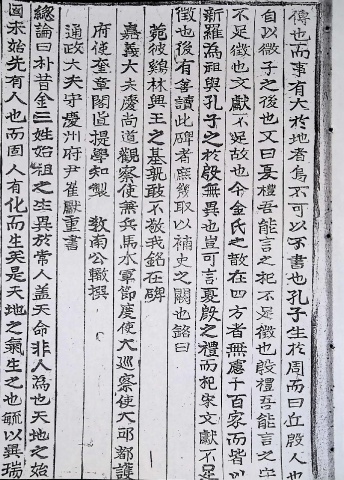 傳也而事有大於地者烏不可以不書也孔子生於周而曰丘殷人也
自以微子之後也又曰夏禮吾能言之杞不足徵也殷禮吾能言之宋
不足徵也文獻不足故也今金氏之散在四方者無慮千百家而皆以
新羅為祖與孔子之於殷無異也豈可言夏殷之禮而杞宋文獻不足
徵也後有善讀此碑者庶幾取以補史之闕也銘曰
菀彼鷄林興王之基孰敢不敬我銘在碑
嘉義大夫慶尚道觀察使兼兵馬水軍節度使大巡察使大邱都護
府使奎章閣直提學知製 敎南公轍撰
通政大夫守慶州府尹崔獻重書
總論曰朴昔金三姓始祖之生異於常人盖天命非人為也天地之始
固未始先有人也而固人有化而生矣是天地之氣生之也毓以異瑞